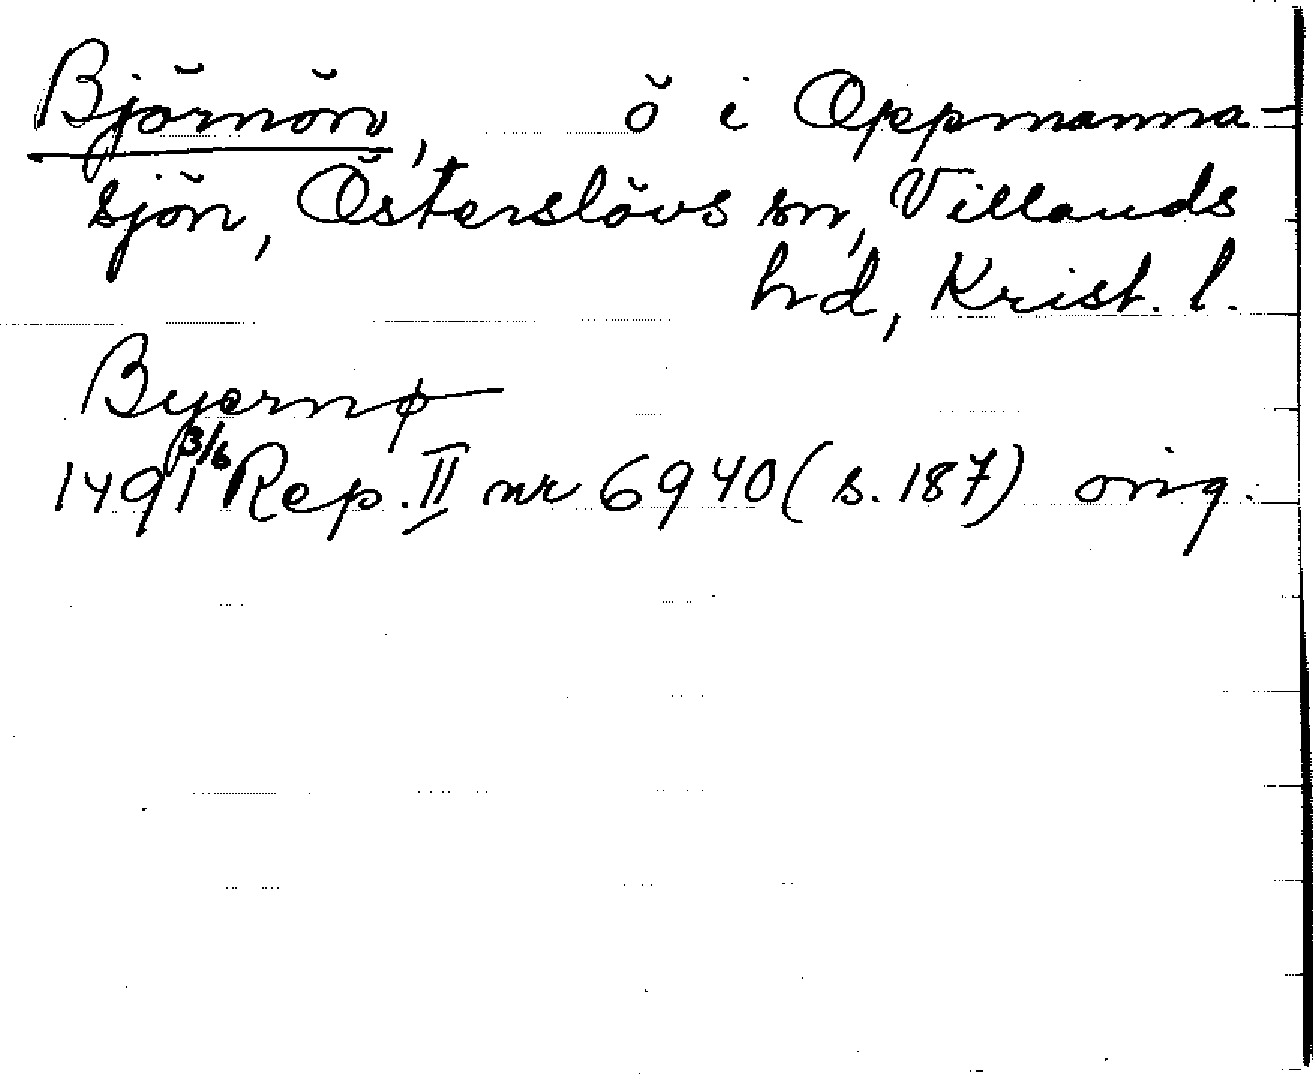 Björnön, ö i Oppmanna-
sjön, Österslövs sn, Villands
hd, Krist. l.
Byernø
1491 3/6 Rep. II nr 6940 (s. 187) orig.